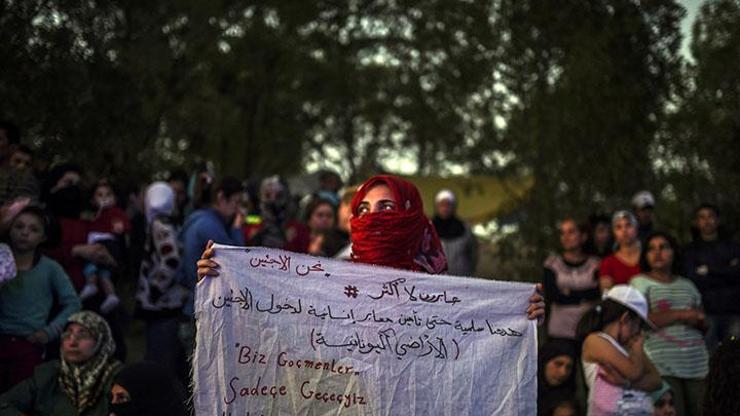 "نحن الاجئين"
# عابرون لا أكثر
سلمية حتى تأمين معابر إنسانية لدخول الاجئين
(الأراضي اليونانية)
"Biz Göçmenler..
Sadeçe Geçeçyiz